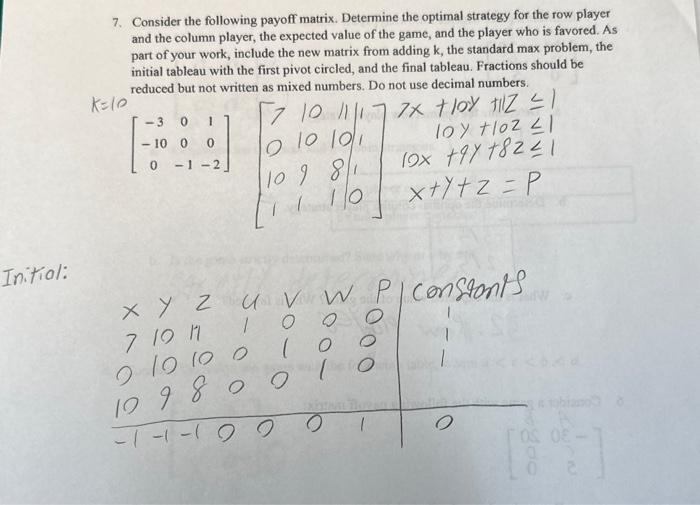 7. Consider the following payoff matrix. Determine the optimal strategy for the row player
and the column player, the expected value of the game, and the player who is favored. As
part of your work, include the new matrix from adding k, the standard max problem, the
initial tableau with the first pivot circled, and the final tableau. Fractions should be
reduced but not written as mixed numbers. Do not use decimal numbers.
K=10
-3 0 1
-10 0 0
0 -1 -2
7 10 11 | 1
0 10 10 | 1
10 9 8 | 1
1 1 1 | 0
7x + 10y + 11z ≤ 1
10y + 10z ≤ 1
10x + 9y + 8z ≤ 1
x + y + z = P
Initial:
x y z u v w P | constants
7 10 11 1 0 0 0 | 1
0 10 10 0 1 0 0 | 1
10 9 8 0 0 1 0 | 1
-1 -1 -1 0 0 0 1 | 0